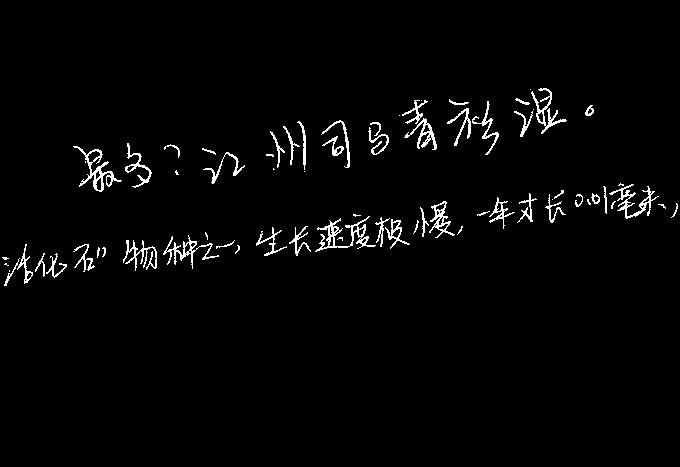 最多?江州司马青衫湿。
活化石”物种之一,生长速度极慢,一年才长0.01毫米,